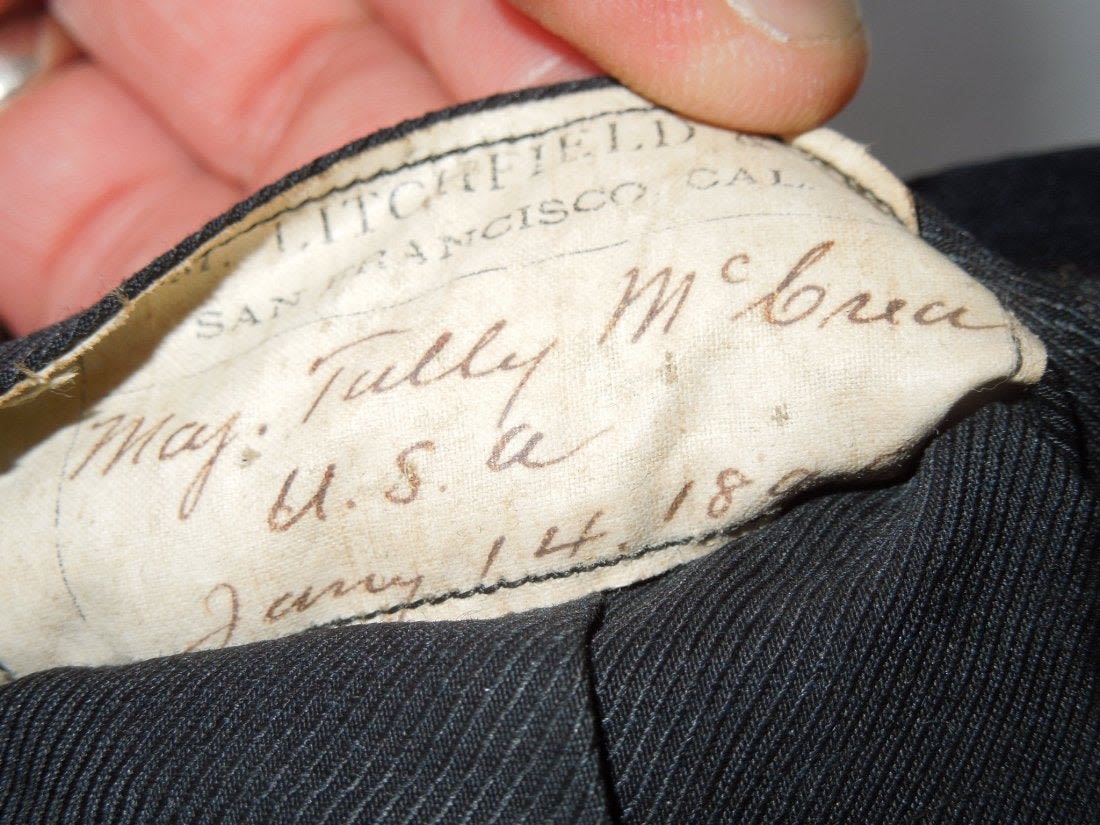 LITCHFIELD
SAN FRANCISCO, CAL.
Maj. Tully McCrea
U.S.A
Jany 14. 189